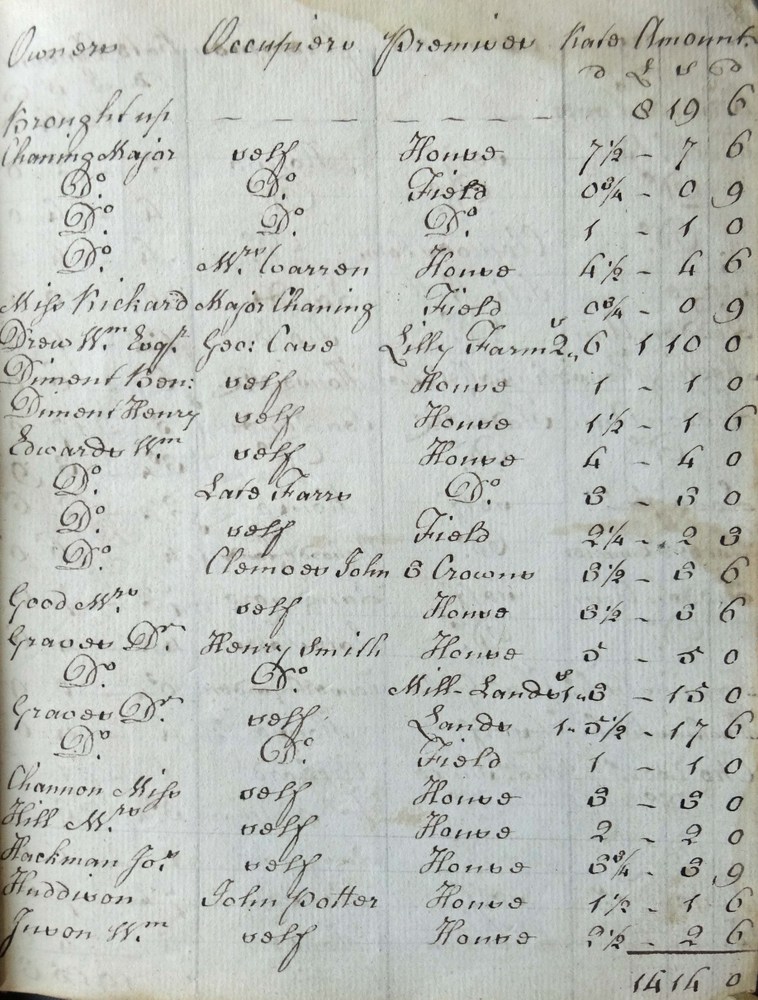 Owners Occupiers Premises Rate Amount.
d £ s d
Brought up - - - - - - - - 8 19 6
Chaning Major self House 7½ - 7 6
Do. Do. Field 0¾ - 0 9
Do. Do. Do. 1 - 1 0
Do. Mrs. Warren House 4½ - 4 6
Miss Rickard Major Chaning Field 0¾ - 0 9
Drew Wm. Esqr. Geo: Cave Lilly Farm 2s,, 6 1 10 0
Diment Ben: self House 1 - 1 0
Diment Henry self House 1½ - 1 6
Edwards Wm. self House 4 - 4 0
Do. Late Farrs Do. 3 - 3 0
Do. self Field 2¼ - 2 3
Do. Clemoes John 3 Crowns 3½ - 3 6
Good Mrs. self House 3½ - 3 6
Graves Dr. Henry Smith House 5 - 5 0
Do. Do. Mill-Lands 1s,, 3 - 15 0
Graves Dr. self Lands 1,, 5½ - 17 6
Do. Do. Field 1 - 1 0
Channon Miss self House 3 - 3 0
Hill Mrs. self House 2 - 2 0
Hackman Jos. self House 3¾ - 3 9
Huddison John Potter House 1½ - 1 6
Ju son Wm. self House 2½ - 2 6
14 14 0